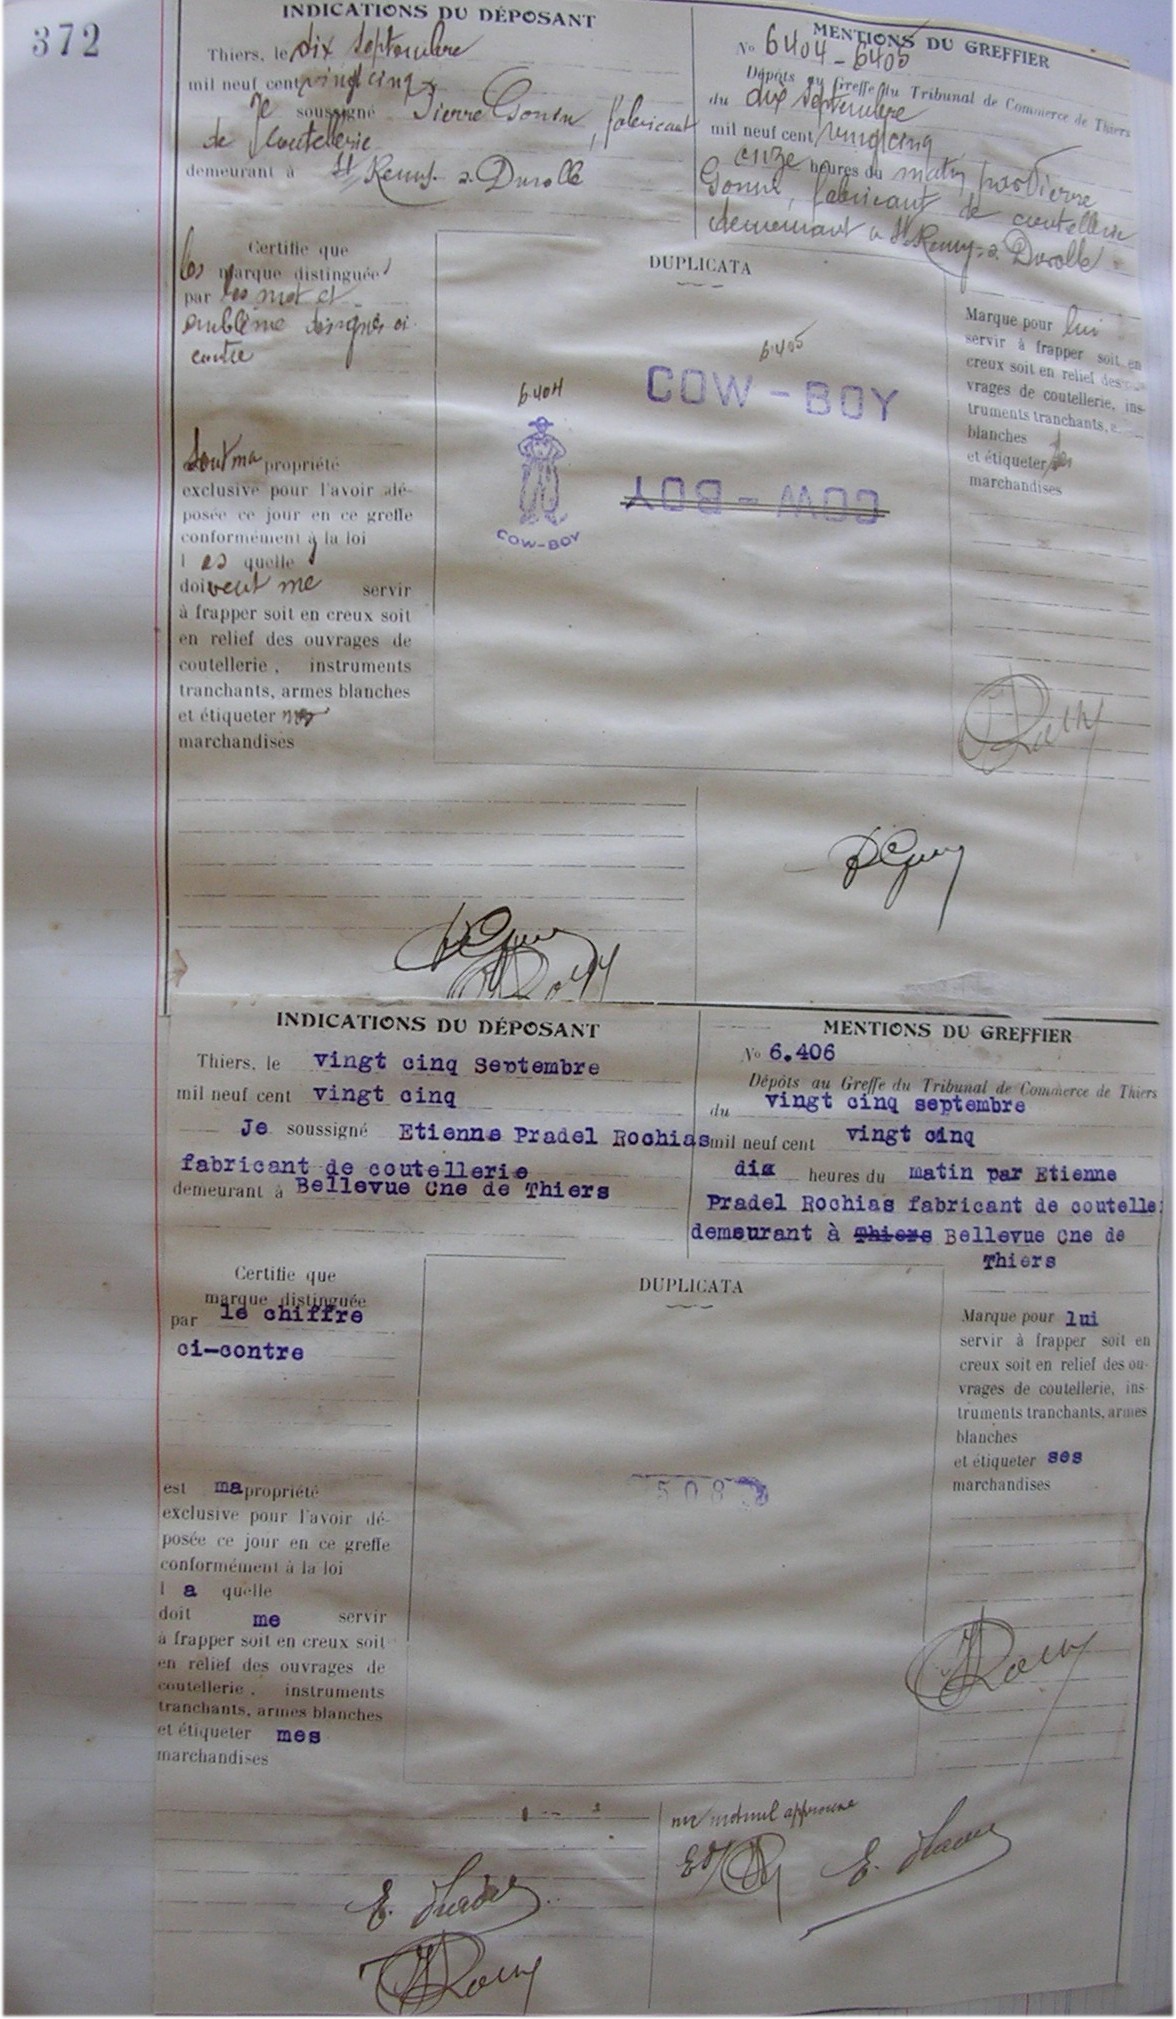 372
INDICATIONS DU DÉPOSANT
Thiers, le dix septembre
mil neuf cent vingt cinq
Je soussigné Pierre Gonin, fabricant
de coutellerie
demeurant à St Remy s. Durolle
MENTIONS DU GREFFIER
No 6404-6405
Dépôts au Greffe du Tribunal de Commerce de Thiers
du dix septembre
mil neuf cent vingt cinq
onze heures du matin par Pierre
Gonin, fabricant de coutellerie
demeurant à St Remy s. Durolle
Certifie que
les marque distinguées
par les mot et
emblème désignés ci
contre
sont ma propriété
exclusive pour l'avoir dé-
posée ce jour en ce greffe
conformément à la loi
l es quelle
doivent me servir
à frapper soit en creux soit
en relief des ouvrages de
coutellerie, instruments
tranchants, armes blanches
et étiqueter mes
marchandises
DUPLICATA
6405
COW-BOY
6404
COW-BOY
COW-BOY
Marque pour lui
servir à frapper soit en
creux soit en relief des
vrages de coutellerie, ins-
truments tranchants, a
blanches
et étiqueter ses
marchandises
INDICATIONS DU DÉPOSANT
Thiers, le vingt cinq Septembre
mil neuf cent vingt cinq
Je soussigné Etienne Pradel Rochias
fabricant de coutellerie
demeurant à Bellevue Cne de Thiers
MENTIONS DU GREFFIER
No 6.406
Dépôts au Greffe du Tribunal de Commerce de Thiers
du vingt cinq septembre
mil neuf cent vingt cinq
dix heures du matin par Etienne
Pradel Rochias fabricant de coutelle
demeurant à Thiers Bellevue Cne de
Thiers
Certifie que
marque distinguée
par le chiffre
ci-contre
est ma propriété
exclusive pour l'avoir dé-
posée ce jour en ce greffe
conformément à la loi
l a quelle
doit me servir
à frapper soit en creux soit
en relief des ouvrages de
coutellerie, instruments
tranchants, armes blanches
et étiqueter mes
marchandises
DUPLICATA
508
Marque pour lui
servir à frapper soit en
creux soit en relief des ou-
vrages de coutellerie, ins-
truments tranchants, armes
blanches
et étiqueter ses
marchandises